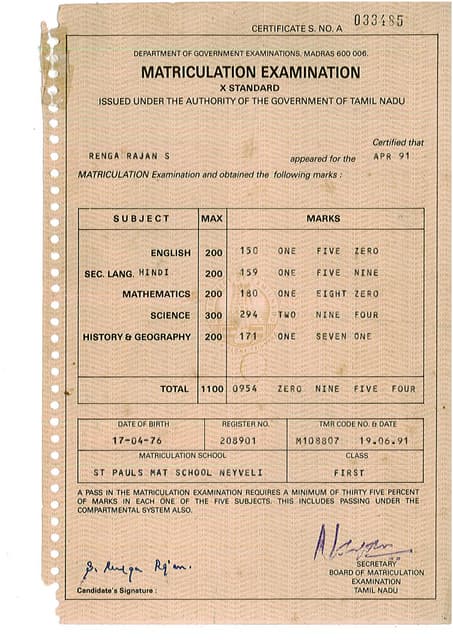 CERTIFICATE S. NO. A 033485
DEPARTMENT OF GOVERNMENT EXAMINATIONS, MADRAS 600 006.
MATRICULATION EXAMINATION
X STANDARD
ISSUED UNDER THE AUTHORITY OF THE GOVERNMENT OF TAMIL NADU
Certified that
RENGA RAJAN S appeared for the APR 91
MATRICULATION Examination and obtained the following marks :
SUBJECT MAX MARKS
ENGLISH 200 150 ONE FIVE ZERO
SEC. LANG. HINDI 200 159 ONE FIVE NINE
MATHEMATICS 200 180 ONE EIGHT ZERO
SCIENCE 300 294 TWO NINE FOUR
HISTORY & GEOGRAPHY 200 171 ONE SEVEN ONE
TOTAL 1100 0954 ZERO NINE FIVE FOUR
DATE OF BIRTH REGISTER NO. TMR CODE NO. & DATE
17-04-76 208901 M108807 19.06.91
MATRICULATION SCHOOL CLASS
ST PAULS MAT SCHOOL NEYVELI FIRST
A PASS IN THE MATRICULATION EXAMINATION REQUIRES A MINIMUM OF THIRTY FIVE PERCENT
OF MARKS IN EACH ONE OF THE FIVE SUBJECTS. THIS INCLUDES PASSING UNDER THE
COMPARTMENTAL SYSTEM ALSO.
S. Renga Rajan.
Candidate's Signature :
SECRETARY
BOARD OF MATRICULATION
EXAMINATION
TAMIL NADU